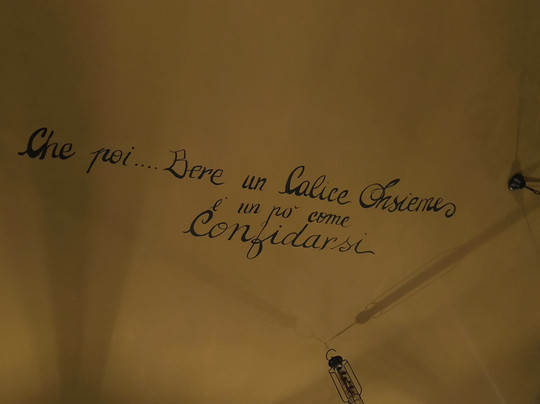 Che poi.... Bere un Calice Insieme
é un pò come
Confidarsi